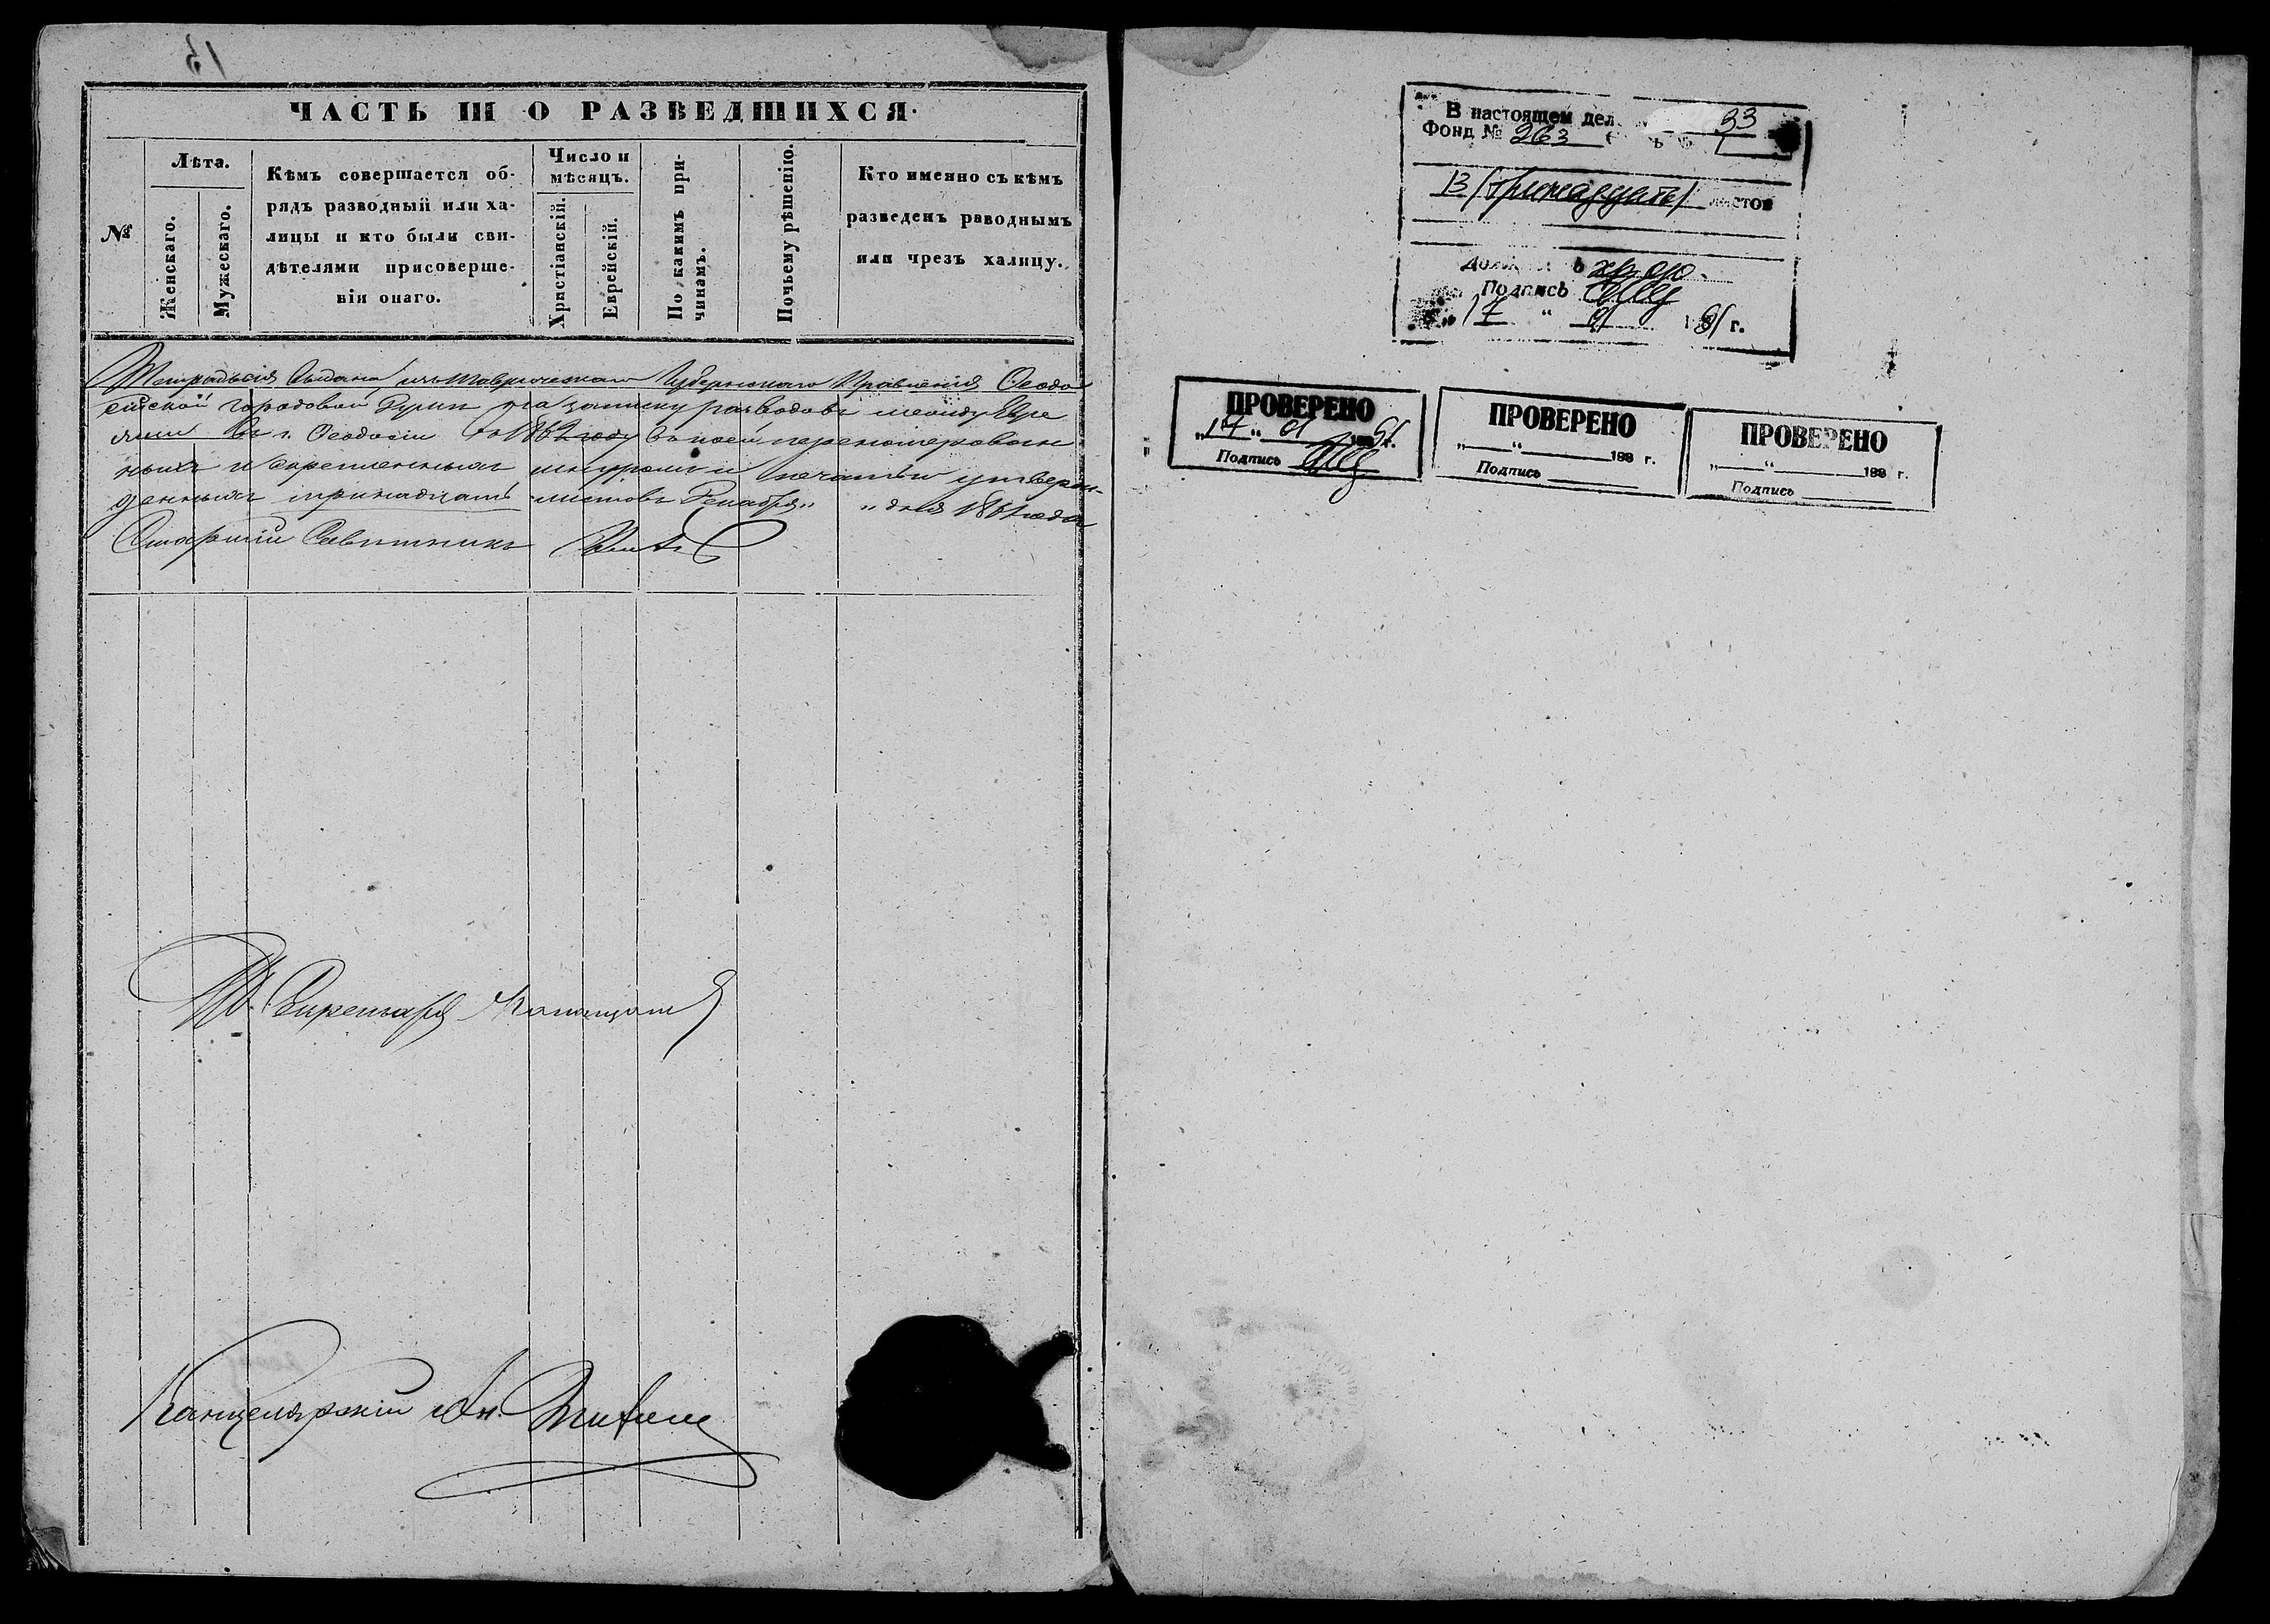 ЧАСТЬ III О РАЗВЕДШИХСЯ.
№
Лѣта.
Женскаго.
Мужескаго.
Кѣмъ совершается об-
рядъ разводный или ха-
лицы и кто были сви-
дѣтелями присоверше-
ніи онаго.
Число и
мѣсяцъ.
Христіанскій.
Еврейскій.
По какимъ при-
чинамъ.
Почьему рѣшенію.
Кто именно съ кѣмъ
разведенъ раводнымъ
или чрезъ халицу.
Тетрадь сія выдана изъ Таврическаго Губернскаго Правленія Ѳеодо
сійской городовой Думѣ на записку разводовъ между Евре
ями въ г. Ѳеодосіи въ 1862 году въ коей перенумерован
ныхъ и скрепленныхъ шнуромъ и печатью утверж-
денныхъ тринадцать листовъ Декабря „ „ дня 1861 года
Старшій Совѣтникъ
Секретарь
Канцелярскій
13
В настоящем дел 33
Фонд № 263
13 (тринадцать) листов
Подпись
„17 “ 01 г.
ПРОВЕРЕНО
„17“ 01 г.
Подпись
ПРОВЕРЕНО
„ “ 198 г.
Подпись
ПРОВЕРЕНО
„ “ 198 г.
Подпись